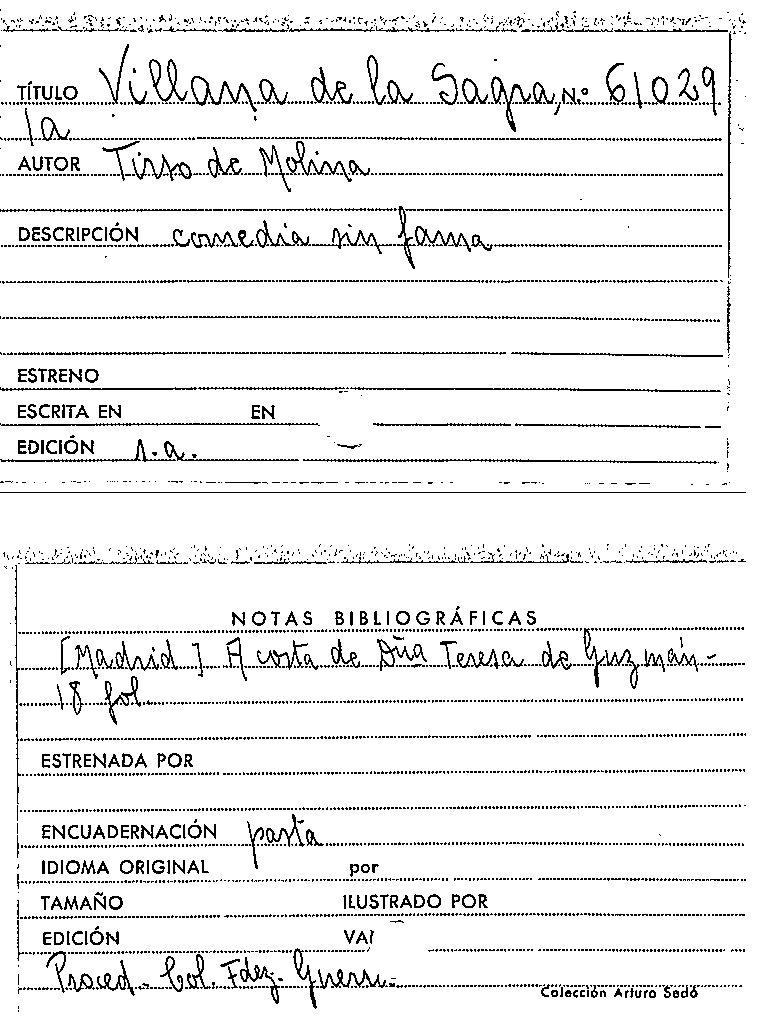 TÍTULO Villana de la Sagra, N.º 61029
la
AUTOR Tirso de Molina
DESCRIPCIÓN comedia sin fama
ESTRENO
ESCRITA EN EN
EDICIÓN s.a.
NOTAS BIBLIOGRÁFICAS
[Madrid] A costa de Dña Teresa de Guzmán -
18 fol.
ESTRENADA POR
ENCUADERNACIÓN pasta
IDIOMA ORIGINAL por
TAMAÑO ILUSTRADO POR
EDICIÓN
Proced. Col. Fdez-Guerra-
Colección Arturo Sedó